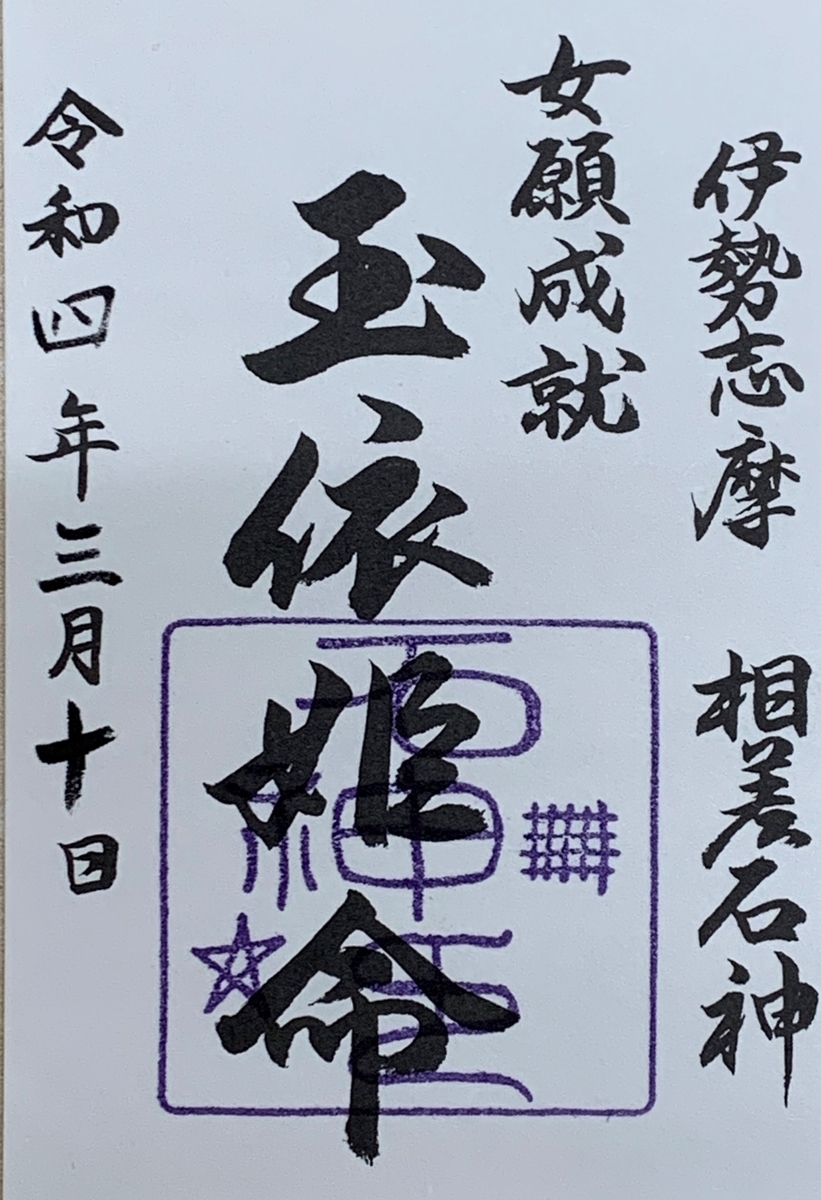 伊勢志摩 相差石神
女願成就
玉依姫命
石神
令和四年三月十日